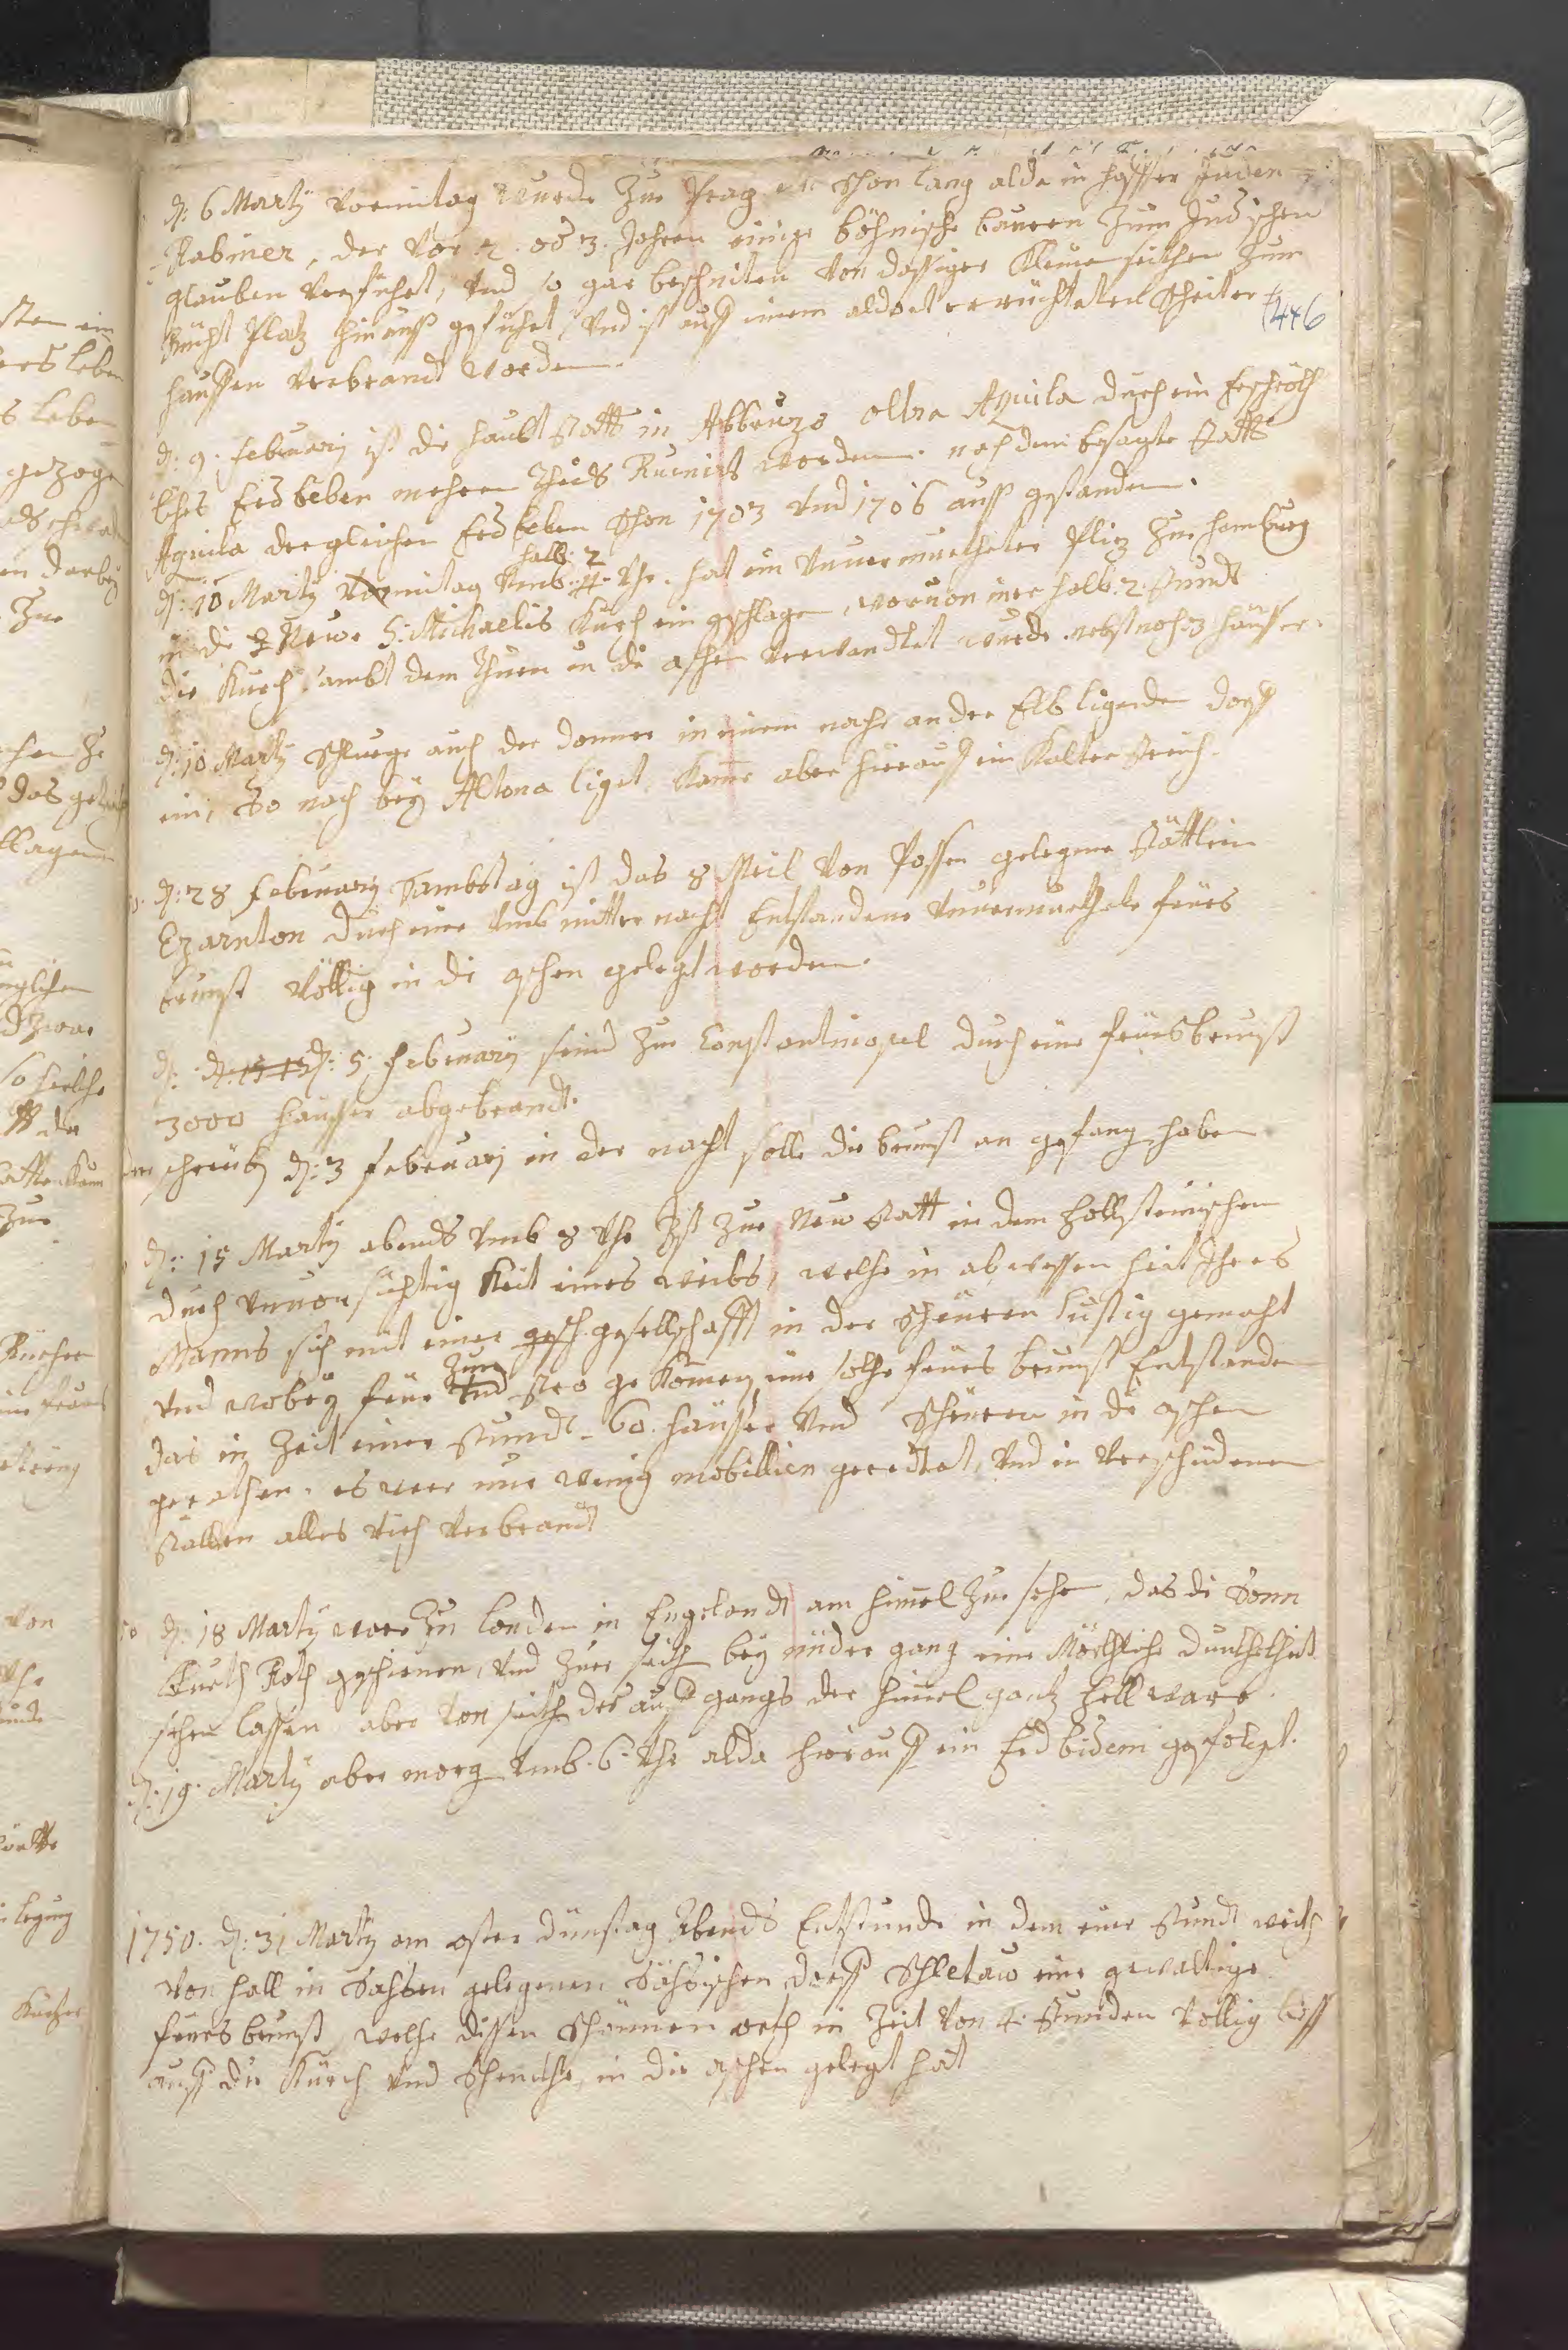 d: 6 Martÿ vormitag wurde zur Prag ein schon lang alda in hafft Juden
Rabiner, der vor 2. od 3. Jahren einige böhmische bauren zum Judischen
glauben verführet, und so gar beschniten von dasiger Kleinen seithen zum
Richt Platz hinauß geführt, und ist auff einem aldort errichteten Scheiter
hauffen verbrandt worden.
446
d: 9. februarij ist die haubt statt in Abbruzo ultra Aquila durch ein erschröth
liches Erdbeben mehren theils Ruinirt worden. nach dem besagte statt
Aquila dergleichen Erdbeben schon 1703 und 1706 auß gestanden.
d: 10 Martÿ mitag umb halb 2 uhr. hat ein unvermuetheter Plitz zur hamburg
in di Neue S: Michaelis Kirch ein geschlagen, wovon inner halb 2 stundt
die Kirch sambt dem thurn in die aschen verwandtlet wurde nebst noch 3 häuser.
d: 10 Martÿ schluege auch der donner in einem nache an der Elb ligenden dorff
ein, so nach beÿ Altona liget. Kame aber hierauß ein Kalter streich.
d: 28 februarij Sambstag ist das 8 Meil von Possen gelegene stättlein
Czarnton durch eine umb mitter nacht Entstandene unvermuethete feürs
brunst völlig in die aschen gelegt worden.
d: 5. februarij seind zur Constantinopel durch eine feürsbrunst
3000 häußer abgebrandt.
schreibt d: 3 februarij in der nacht solle die brunst an gefang haben
d: 15 Martÿ abends umb 8 uhr Ist zur Neu statt in dem hollsteinischen
durch unvorsichtig Keit eines weibs, welche in abwessen heit Ihres
Manns sich mit einer gesellschafft in der scheüren lustig gemacht
und wobeÿ feür zum stro gekomen, eine solche feürs brunst Entstanden
das in Zeit einer stundt 60. häußer und scheüren in die aschen
gerathen. es ware nur wenig mobillien gerettet, und in verschidenen
stallen alles vieh verbrandt
d: 18 Martÿ ware zu londen in Engelandt am himel zu sehen, das di Sonn
bluth Roth geschienen, und zur seith beÿ nider gang eine Mörkliche dunckelheit
sehen lassen aber von seith des auff gangs der himel gantz hell ware.
d: 19. Martÿ aber morg umb 6 uhr alda hierauß ein Erdbidem gefolgt.
1750. d: 31 Martÿ am oster dinstag Abends Entstunde in dem eine stundt weith
von hall in Sachsen gelegenen Sachsischen dorff Schletau eine gewaltige
feürs brunst, welche dissen schönnen orth in Zeit von 4. stunden völlig biß
auff die Kirch und schencke, in die aschen gelegt hat